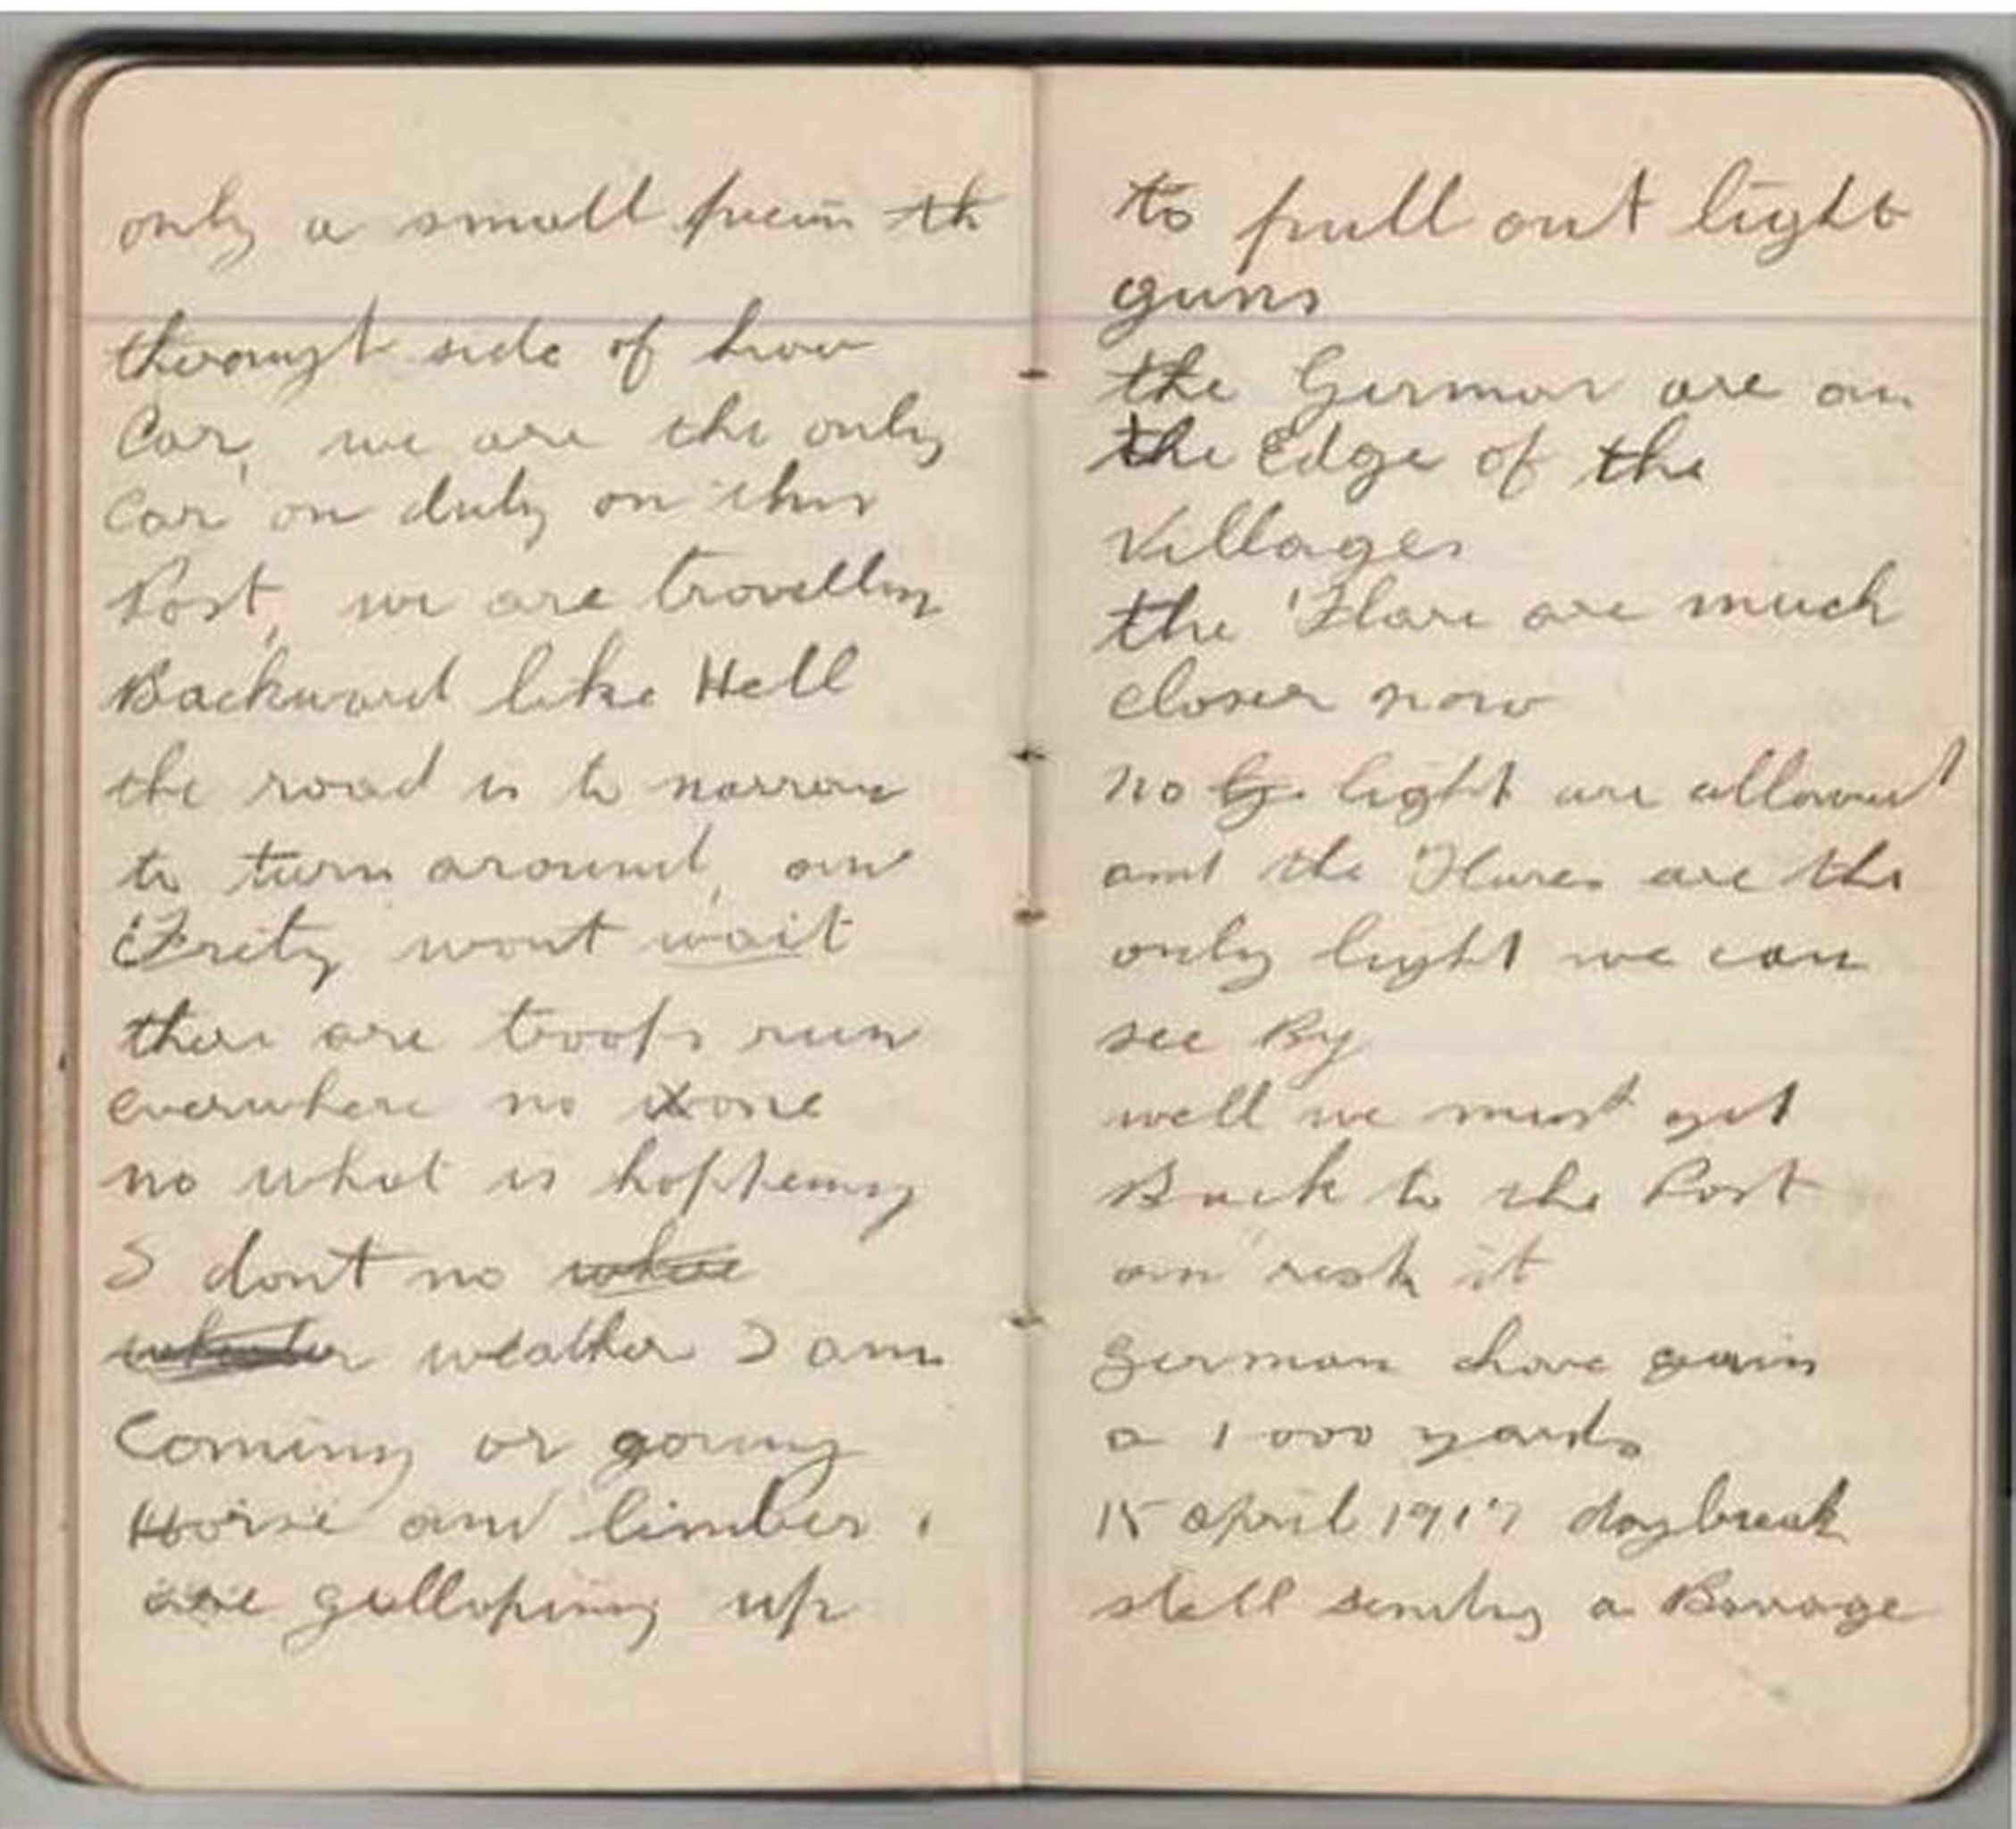 only a small piecein th
throught side of
Car, we are the only
Car on duty on this
Post, we are travelling
Backward like Hell
the road is to narrow
to turn around, an
Fritz wont wait
there are troops run
everwhere no one
no what is happening
I dont no where
wheather weather I am
Coming or going
Horse and limber
are galloping up
to pull out light
guns
the German are on
the Edge of the
Villages
the Flare are much
closer now
no light are allowed
and the Flares are the
only light we can
see By
well we must get
Back to the Post
an risk it
German have gain
a 1000 yards
15 april 1917 daybreak
still sending a Barage